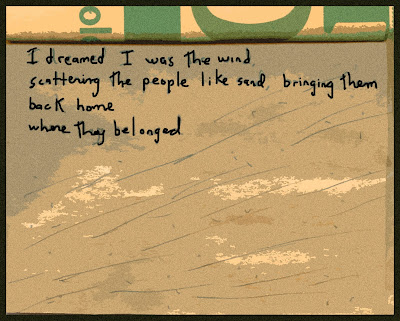 I dreamed I was the wind
scattering the people like sand, bringing them
back home
where they belonged